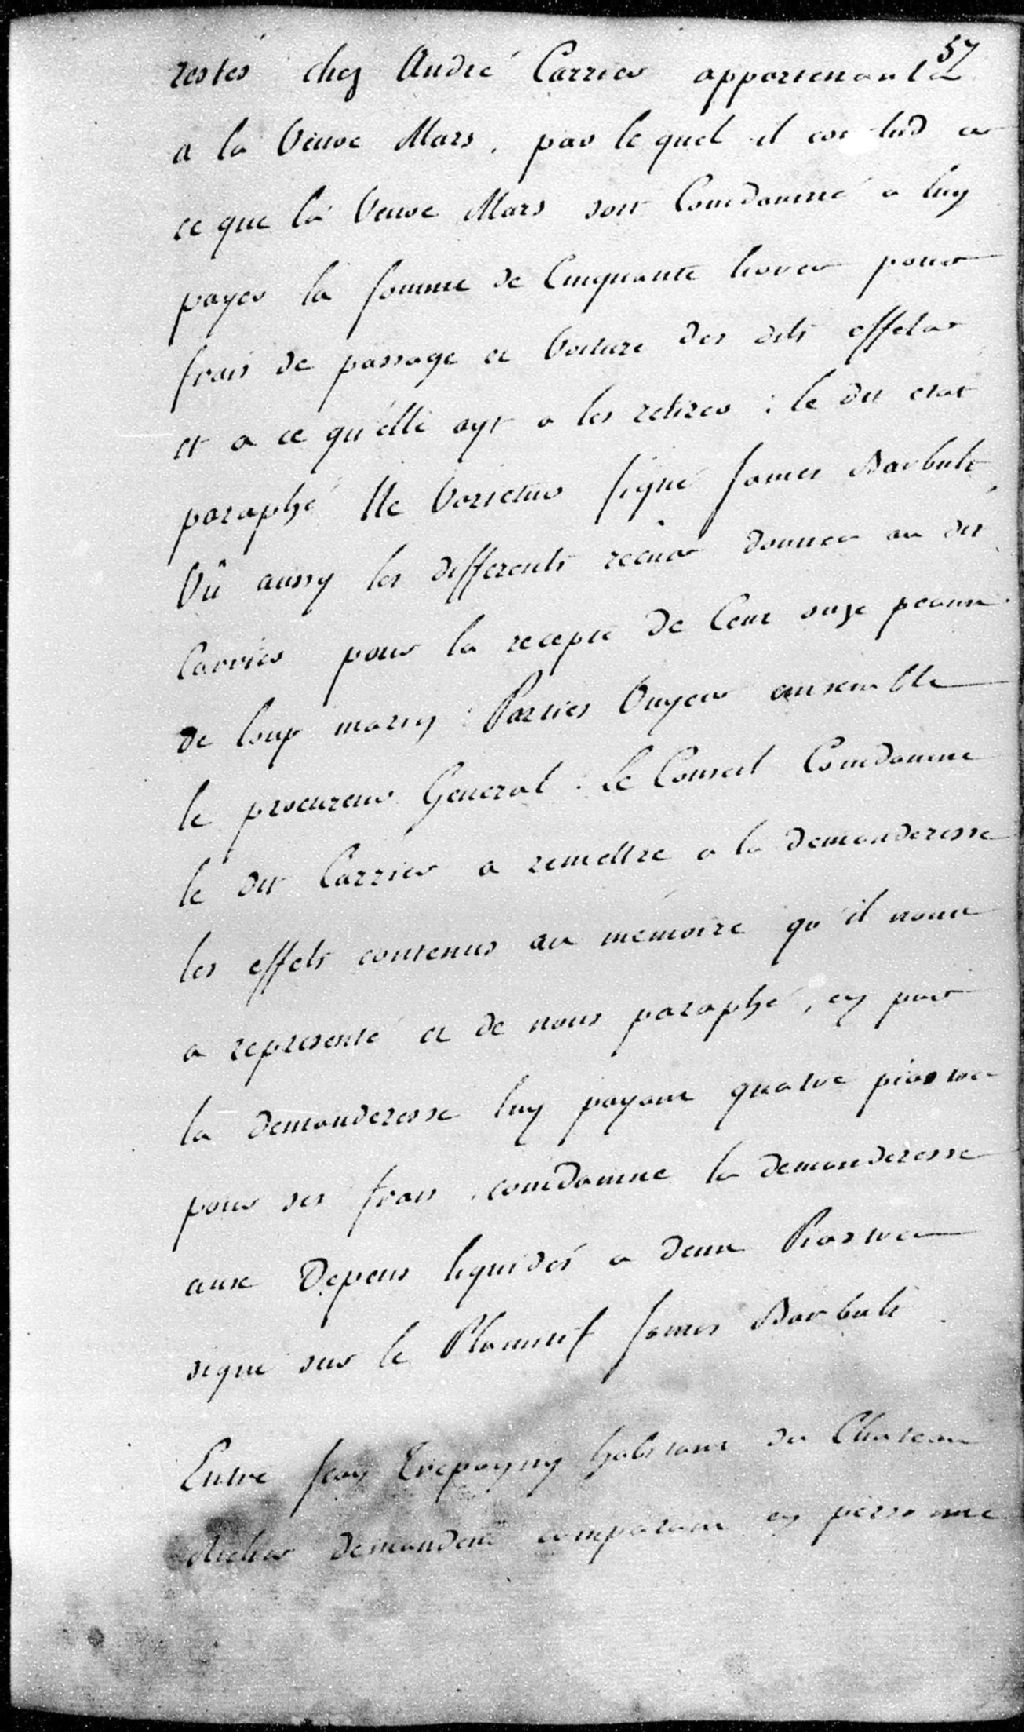 57
restés chez André Carrier appartenant
a la Veuve Mars, par le quel il conclud a
ce que la Veuve Mars soit Condamné a luy
payer la somme de Cinquante livres pour
frais de passage et Voiture des dits effets
et a ce qu'elle ayt a les retirer : le dit etat
paraphé Ne Varietur signé James Barbut
Vû aussy les differents recus donner au dit
Carrier pour la recepte de Cent onze peaux
de loup marin : Parties Ouyes ensemble
le procureur General : Le Conseil Condamne
le dit Carrier a remettre a la demanderesse
les effets contenus au mémoire qu'il nous
a representé et de nous paraphé, en par
la demanderesse luy payant quatre piastres
pour ses frais, condamne la demanderesse
aux Depens liquidés a deux Piastres
signé sur le Plumitif James Barbut
Entre Jean Trepagny habitant du Chateau
Richer demandeur comparant en personne